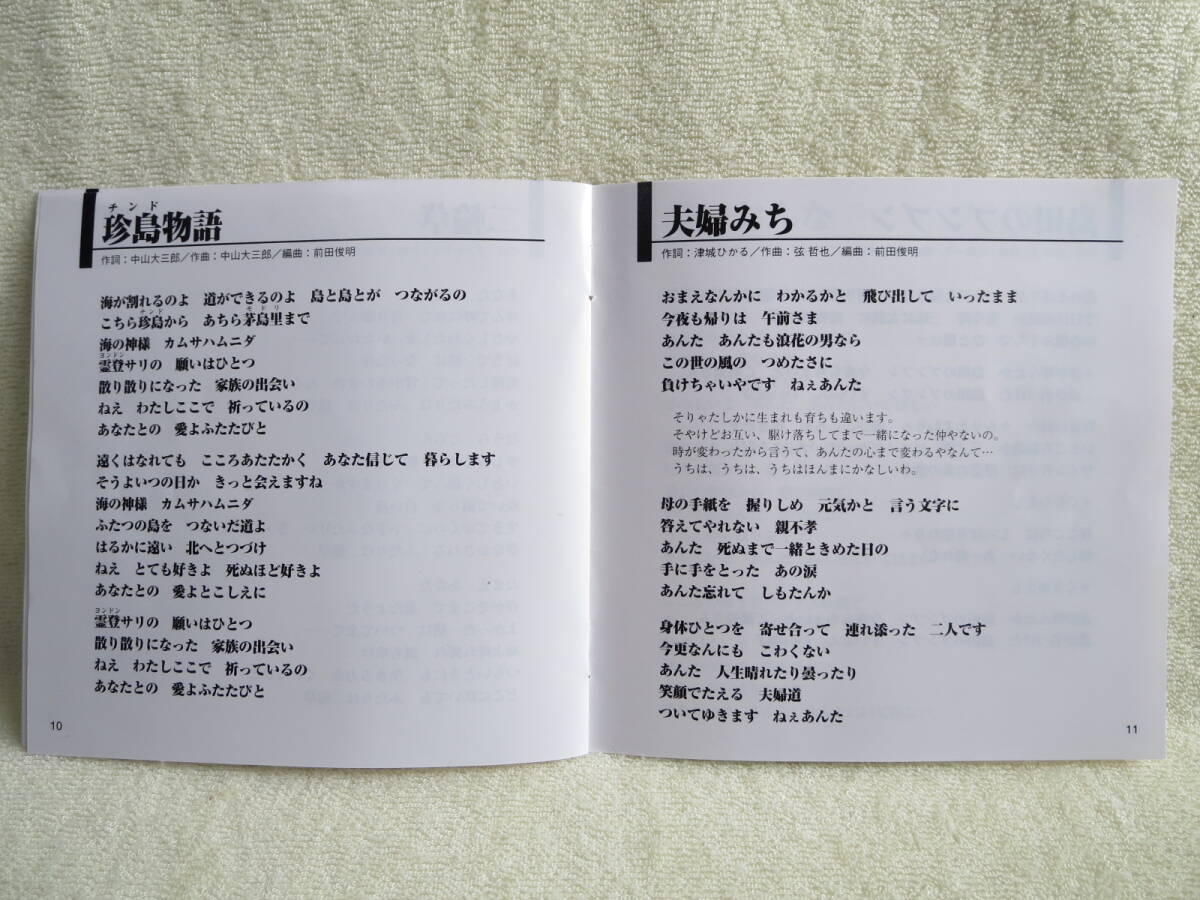 チンド
珍島物語
作詞：中山大三郎／作曲：中山大三郎／編曲：前田俊明
海が割れるのよ　道ができるのよ　島と島とが　つながるの
チンド　モドリ
こちら珍島から　あちら茅島里まで
海の神様　カムサハムニダ
ヨンドン
霊登サリの　願いはひとつ
散り散りになった　家族の出会い
ねえ　わたしここで　祈っているの
あなたとの　愛よふたたびと
遠くはなれても　こころあたたかく　あなた信じて　暮らします
そうよいつの日か　きっと会えますね
海の神様　カムサハムニダ
ふたつの島を　つないだ道よ
はるかに遠い　北へとつづけ
ねえ　とても好きよ　死ぬほど好きよ
あなたとの　愛よとこしえに
ヨンドン
霊登サリの　願いはひとつ
散り散りになった　家族の出会い
ねえ　わたしここで　祈っているの
あなたとの　愛よふたたびと
10
夫婦みち
作詞：津城ひかる／作曲：弦 哲也／編曲：前田俊明
おまえなんかに　わかるかと　飛び出して　いったまま
今夜も帰りは　午前さま
あんた　あんたも浪花の男なら
この世の風の　つめたさに
負けちゃいやです　ねぇあんた
そりゃたしかに生まれも育ちも違います。
そやけどお互い、駆け落ちしてまで一緒になった仲やないの。
時が変わったから言うて、あんたの心まで変わるやなんて…
うちは、うちは、うちはほんまにかなしいわ。
母の手紙を　握りしめ　元気かと　言う文字に
答えてやれない　親不孝
あんた　死ぬまで一緒ときめた日の
手に手をとった　あの涙
あんた忘れて　しもたんか
身体ひとつを　寄せ合って　連れ添った　二人です
今更なんにも　こわくない
あんた　人生晴れたり曇ったり
笑顔でたえる　夫婦道
ついてゆきます　ねぇあんた
11